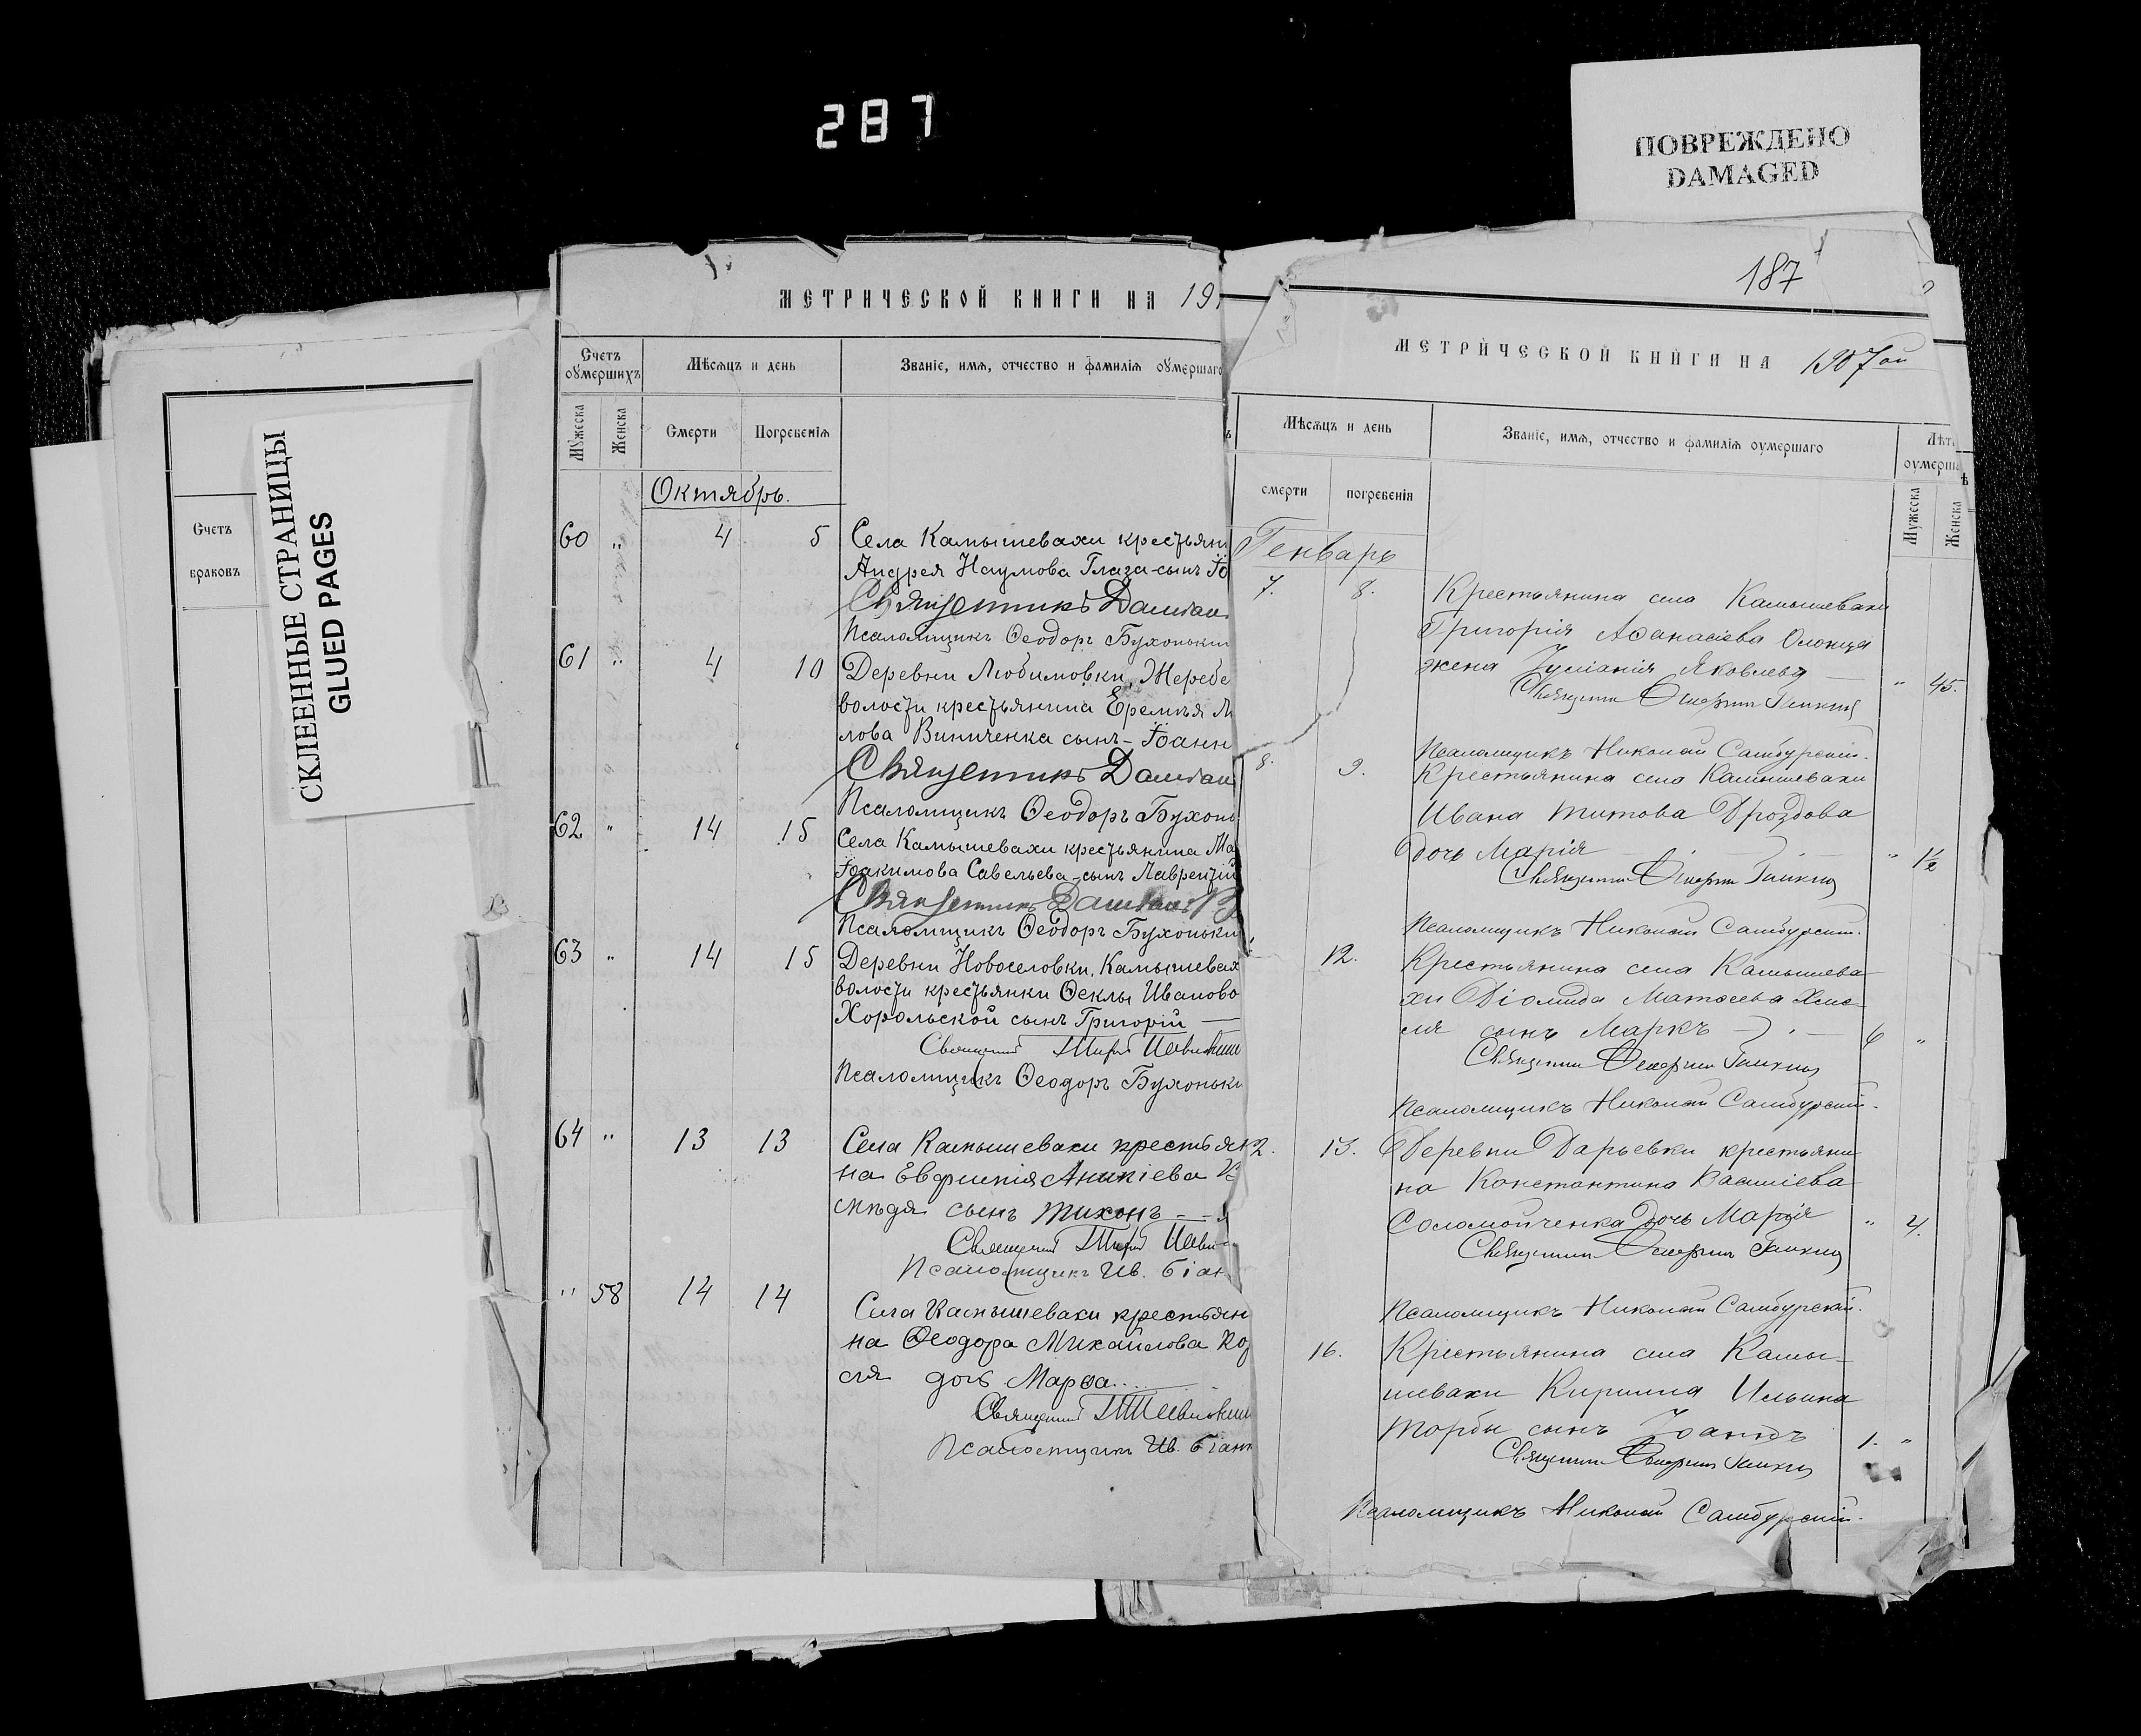 287
ПОВРЕЖДЕНО
DAMAGED
СКЛЕЕННЫЕ СТРАНИЦЫ
GLUED PAGES
Счетъ
браковъ
МЕТРИЧЕСКОЙ КНИГИ НА 19
Счетъ оумершихъ
Мѣсяцъ и день
Званіе, имя, отчество и фамилія оумершаго
Мужеска
Женска
Смерти
Погребенія
Октябрь.
60 " 4 5 Села Камышевахи крестьяни
Андрея Наумова Глаза-сынъ Іо
Священникъ Даміан
Псаломщикъ Ѳеодоръ Бухоньки
61 " 4 10 Деревни Любимовки, Жеребе
волости крестьянина Еремѣя М
лова Виниченка сынъ - Іоанн
Священникъ Даміан
Псаломщикъ Ѳеодоръ Бухонь
62 " 14 15 Села Камышевахи крестьянина Ма
Іоакимова Савельева-сынъ Лаврентій
Священникъ Даміанъ
Псаломщикъ Ѳеодоръ Бухоньки
63 " 14 15 Деревни Новоселовки, Камышевах
волости крестьянки Ѳеклы Иваново
Хорольской сынъ Григорій
Священник
Псаломщикъ Ѳеодоръ Бухоньки
64 " 13 13 Села Камышевахи крестьян
на Евфимія Аникіева
смѣдя сынъ Тихонъ
Священник
Псаломщикъ Ив. Біан
" 58 14 14 Села Камышевахи крестьян
на Ѳеодора Михайлова Ко
ля дочь Марѳа....
Священник
Псаломщикъ Ив. Біан
187
МЕТРИЧЕСКОЙ КНИГИ НА 1907ой
Мѣсяцъ и день
Званіе, имя, отчество и фамилія оумершаго
Лѣт
оумерш
смерти
погребенія
Мужеска
Женска
Генварь
7. 8. Крестьянина села Камышевахи
Григорія Аѳанасіева Олокца
жена Іуліанія Яковлева " 45.
Священник
Псаломщикъ Николай Самбурскій.
8. 9. Крестьянина села Камышевахи
Ивана Титова Дроздова
дочь Марія " 1/2
Священник
Псаломщикъ Николай Самбурскій.
12. Крестьянина села Камышева-
хи Діомида Матѳеева Хме-
ля сынъ Маркъ 6 "
Священник
Псаломщикъ Николай Самбурскій.
2. 13. Деревни Дарьевки крестьяни
на Константина Василіева
Соломойченка дочь Марія " 4.
Священник
Псаломщикъ Николай Самбурскій.
16. Крестьянина села Камы-
шевахи Кирилла Ильина
Торбы сынъ Іоаннъ 1. "
Священник
Псаломщикъ Николай Самбурскій.